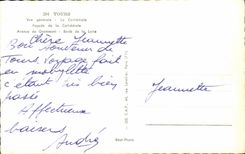 204 TOURS
Vue générale - La Cathédrale
Façade de la Cathédrale
Avenue de Grammont - Bords de la Loire
Chère Jeannette
Bon Souvenir de
Tours. Voyage fait
en mobylette
c'était très bien
passé
Affectueux
baisers
André
Jeannette